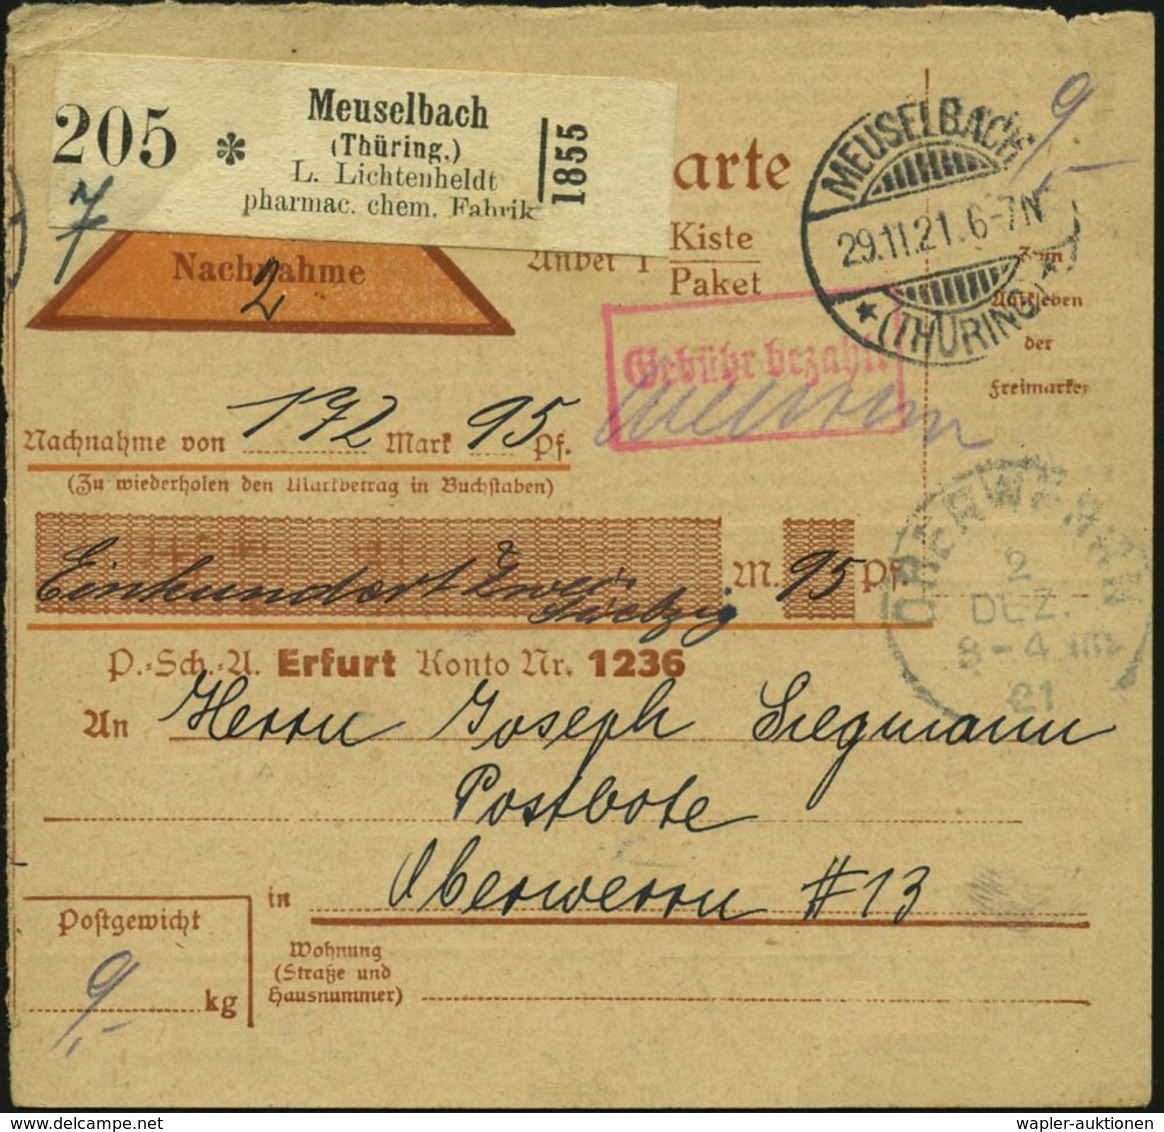 205 * Meuselbach
(Thüring.)
L. Lichtenheldt
pharmac. chem. Fabrik
1855
7
arte
MEUSELBACH
29.11.21. 6-7N
* (THÜRING.) *
9,-
Nachnahme
2
Anbei 1 Kiste
Paket
Zum
Aufkleben
der
Freimarken
Gebühr bezahlt
Nachnahme von 172 Mark 95 Pf.
(Zu wiederholen den Markbetrag in Buchstaben)
Einhundert zwei
siebzig M. 95 Pf.
OBERWERRN
2
DEZ.
3-4
21
P.-Sch.-A. Erfurt Konto Nr. 1236
An Herrn Joseph Siegmann
Postbote
in Oberwerrn #13
Postgewicht
9,- kg
Wohnung
(Straße und
Hausnummer)
wapler-auktionen